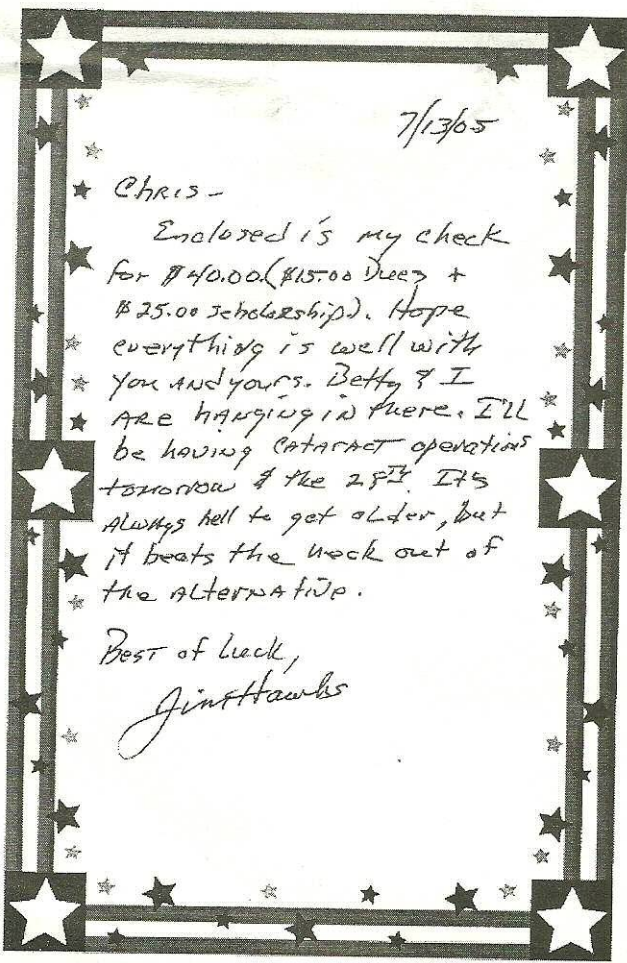 7/13/05
Chris-
Enclosed is my check
for $40.00.($15.00 Dues +
$25.00 scholarship). Hope
everything is well with
you and yours. Betty & I
are hanging in there. I'll
be having cataract operations
tomorrow & the 28th. Its
always hell to get older, but
it beats the heck out of
the alternative.
Best of luck,
Jim Hawks